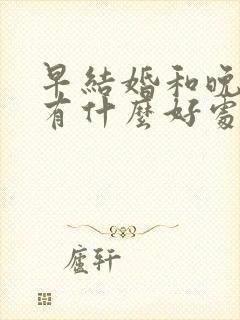 早結婚和晚
有什麼好處
廬軒